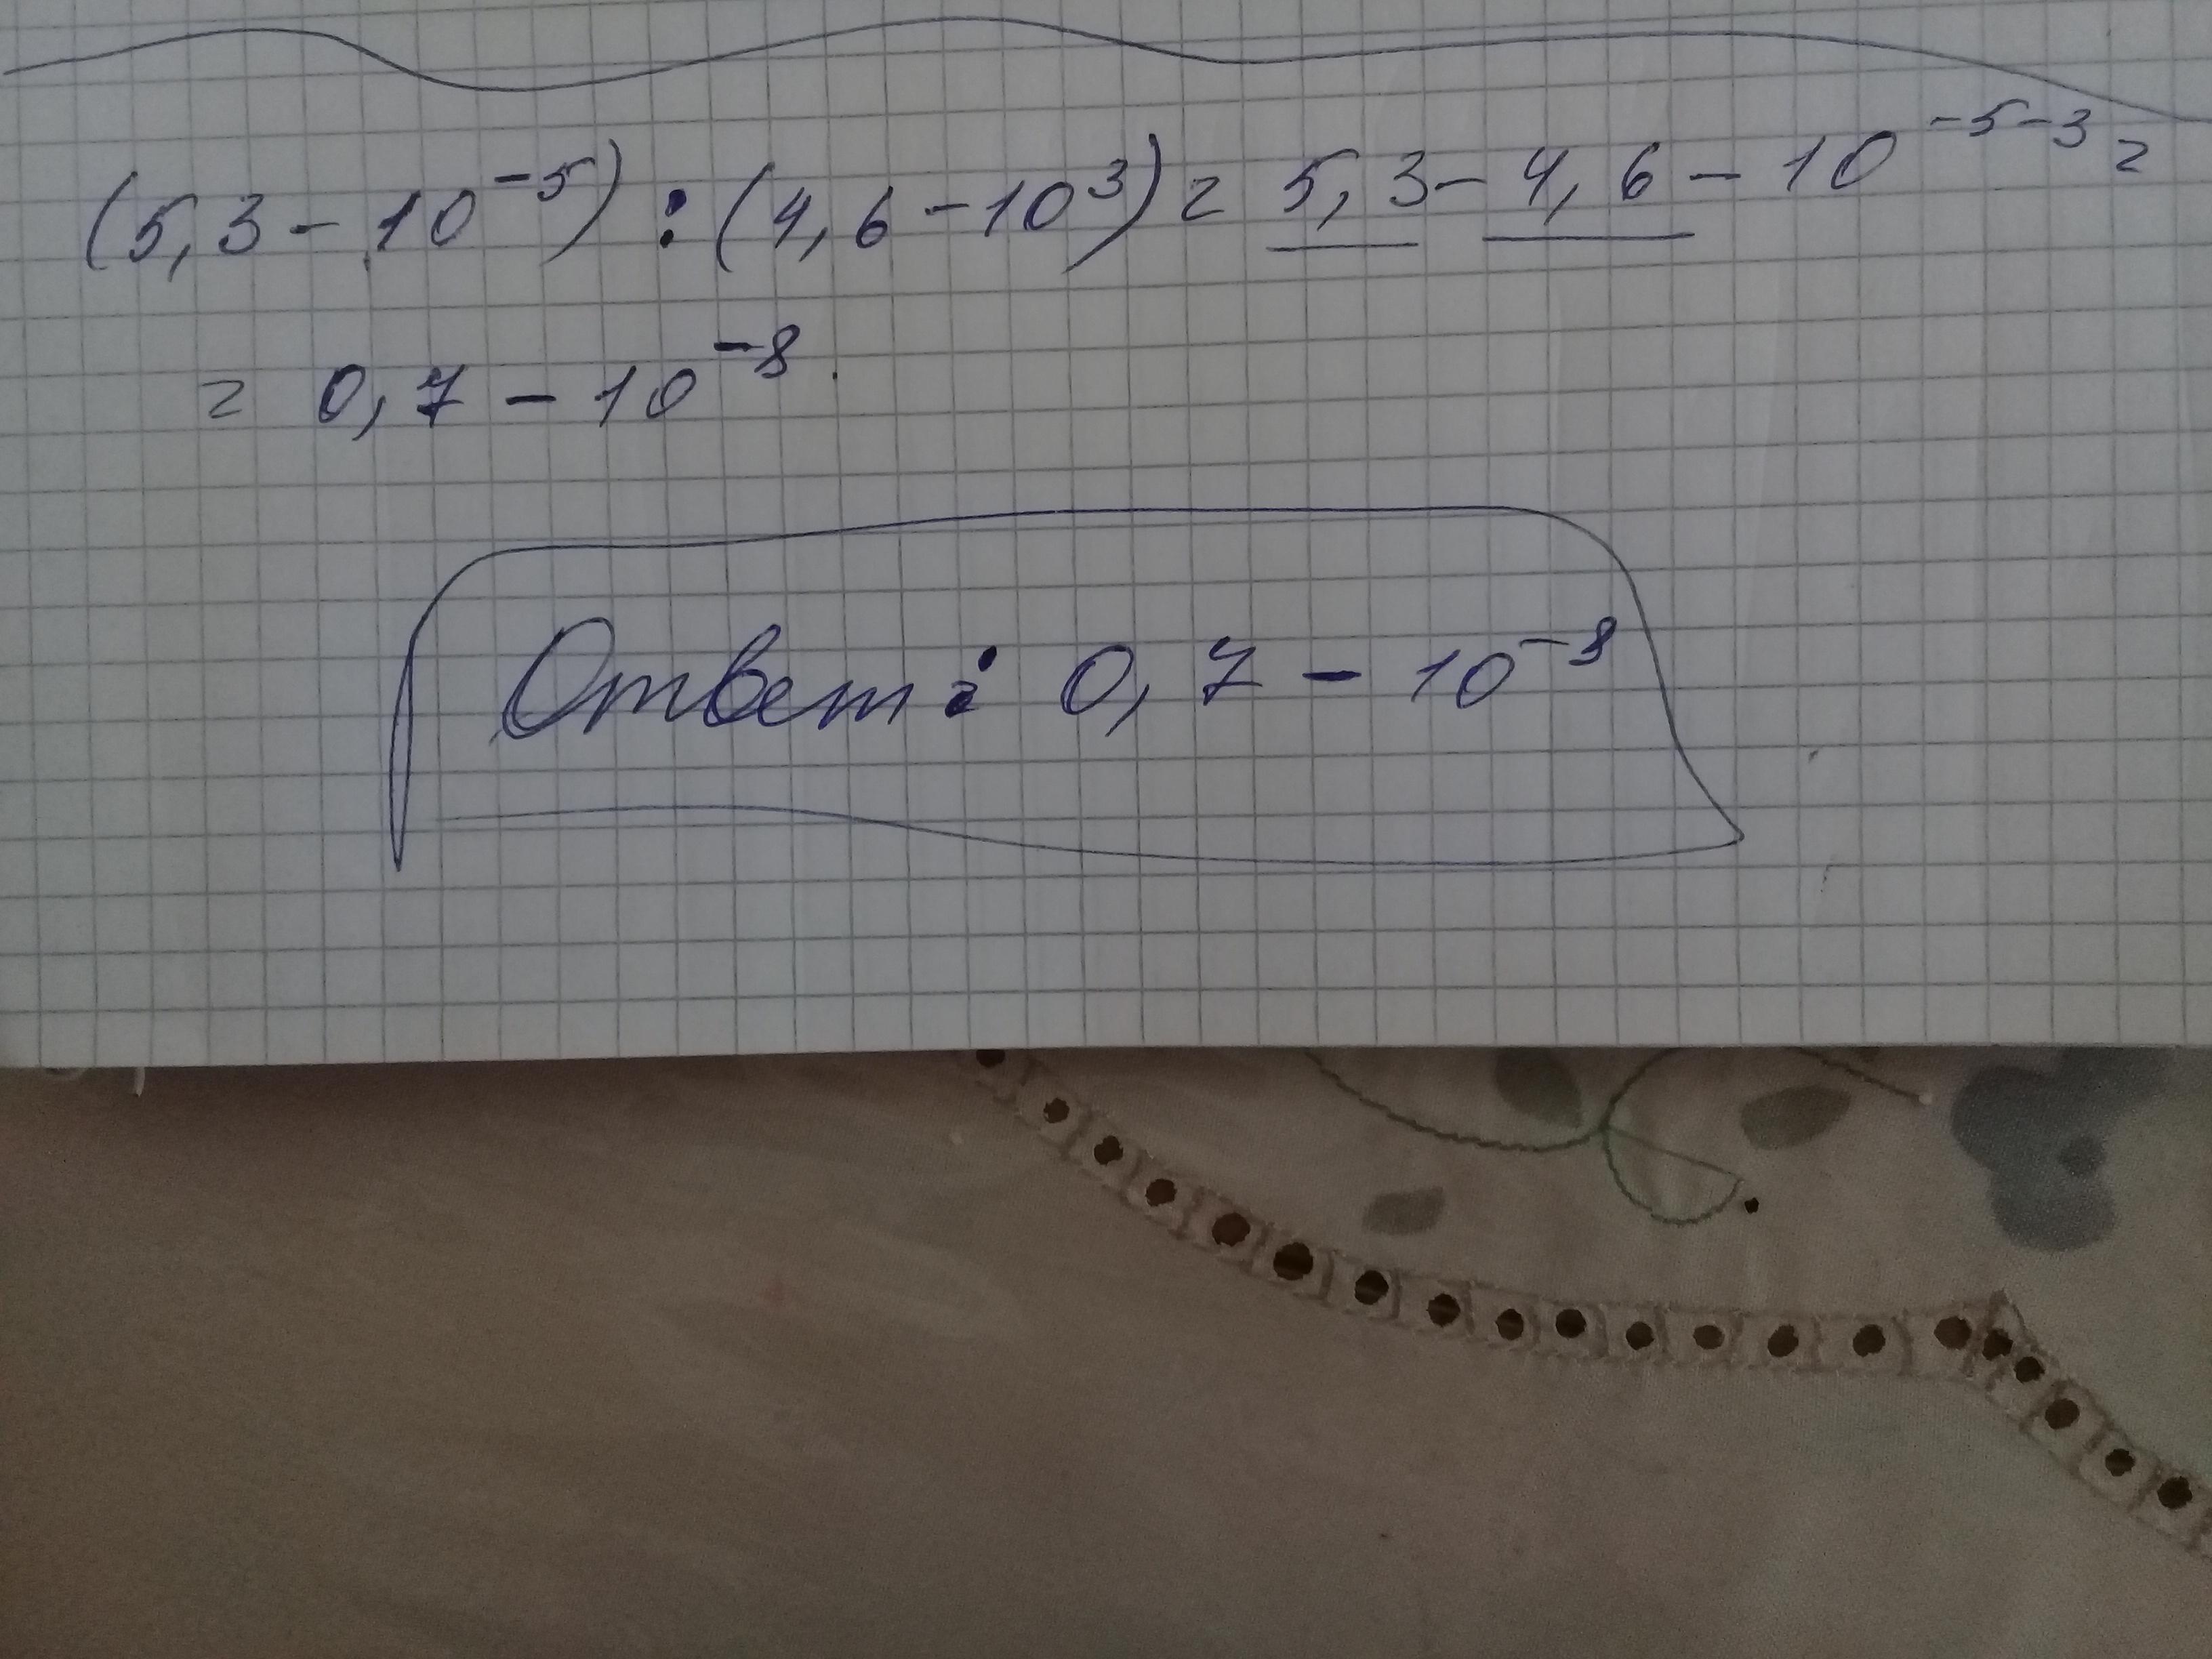 (5,3 - 10⁻⁵) : (4,6 - 10³) = 5,3 - 4,6 - 10⁻⁵⁻³ =
= 0,7 - 10⁻⁸.
Ответ: 0,7 - 10⁻⁸